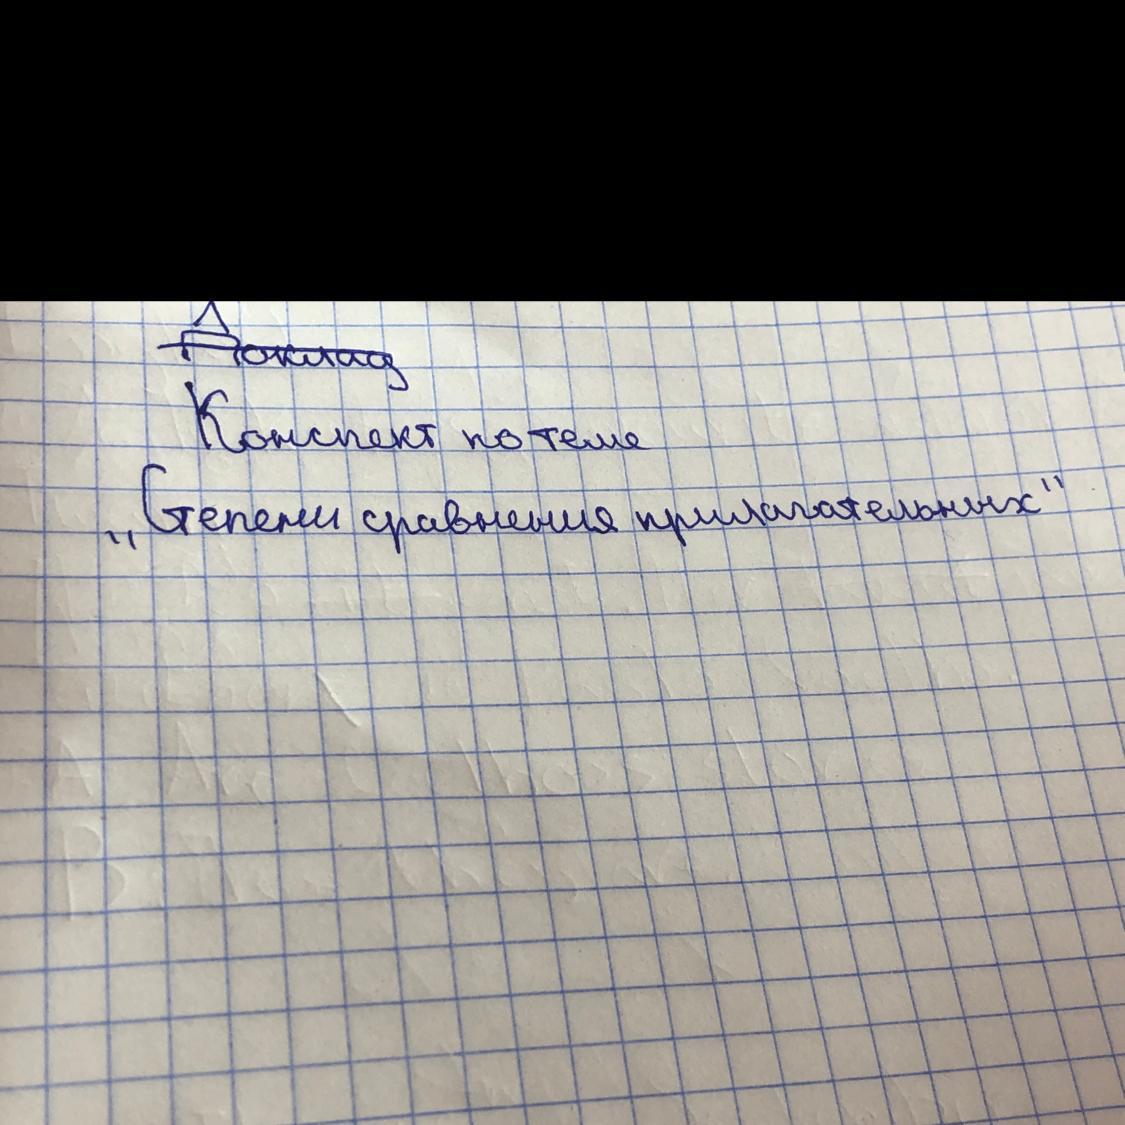 Доклад
Конспект по теме
„Степени сравнения прилагательных"